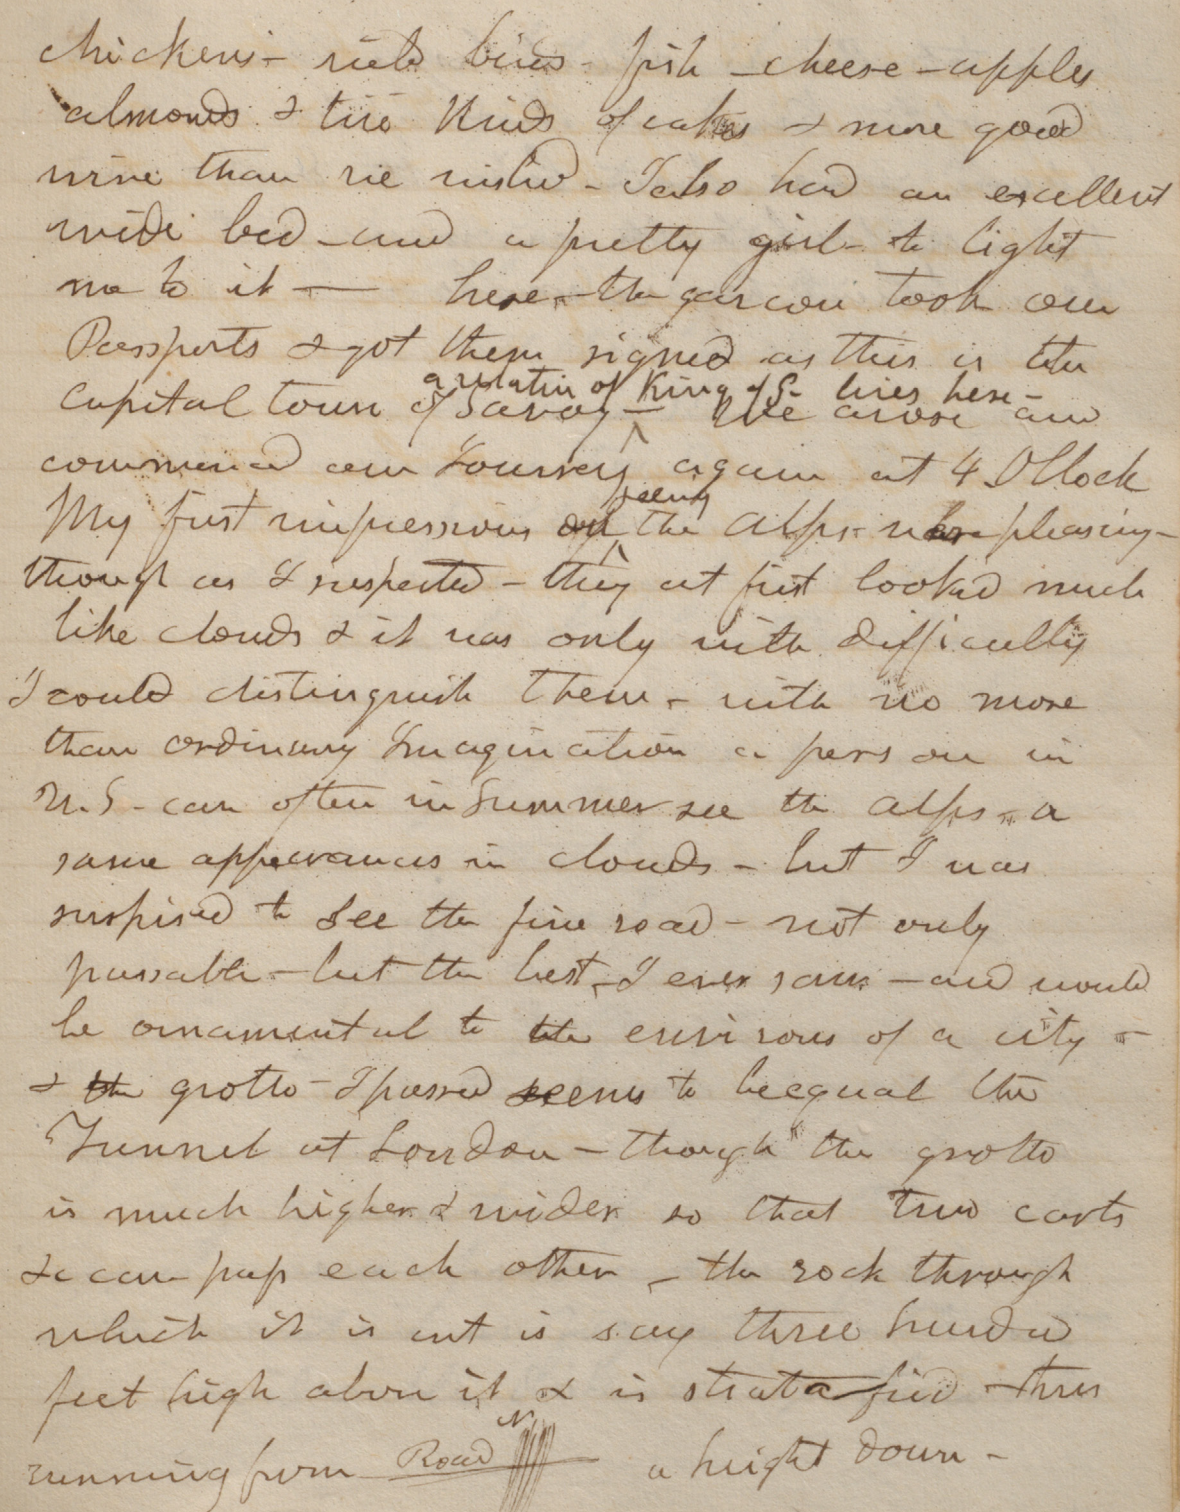 chickens - rich birds - fish - cheese - apples
almonds & two kinds of cakes & more good
wine than we wished - I also had an excellent
wide bed - and a pretty girl - to light
me to it — here - the garcon took our
Passports & got them signed as this is the
a relation of King of S- lives here -
Capital town of Savoy — We arose and
commenced our Journey again at 4 OClock
seeing
My first impressions of the Alps - were pleasing -
though as I suspected - they at first looked much
like clouds & it was only with difficulty
I could distinguish them - with no more
than ordinary Imagination a person in
U.S - can often in Summer see the Alps - a
same appearances in clouds - but I was
surpised to see the fine road - not only
passable - but the best - I ever saw - and would
be ornamental to the environs of a city -
& the grotto - I passed seems to be equal the
Tunnel at London - though the grotto
is much higher & wider so that two carts
&c can pass each other - the rock through
which it is cut is say three hundred
feet high above it & is stratafied - thus
N
running from Road a height down -